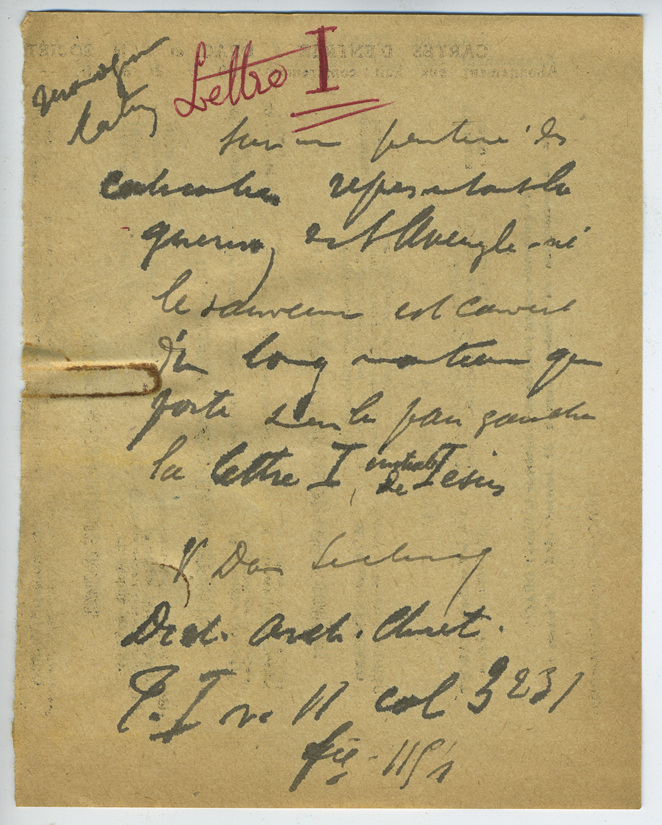 Lettre I
Sur une peinture des
catacombes représentant la
guérison de l'Aveugle-né
le sauveur est couvert
d'un long manteau qui
porte sur le pan gauche
la lettre I initiale de Iésus
V Dom Leclercq
Dict. Arch. Chret.
T. I v. II col 3231
fig. 1151